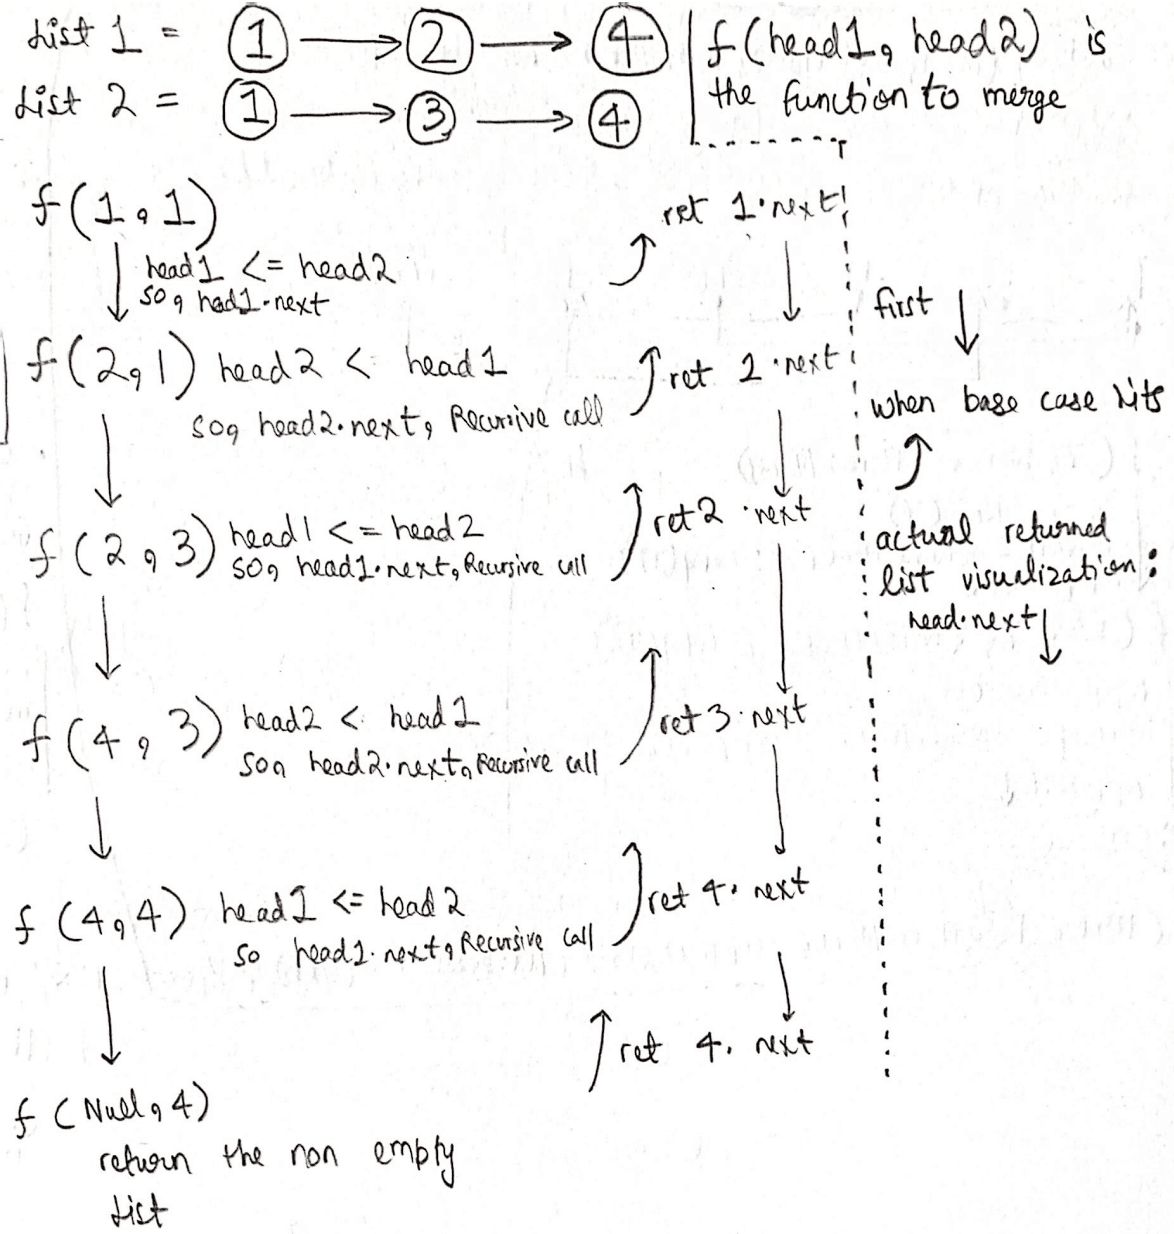 List 1 = 1 → 2 → 4
List 2 = 1 → 3 → 4
f(head1, head2) is
the function to merge
f(1, 1)
head1 <= head2
so, had1.next
f(2,1) head2 < head1
so, head2.next, Recursive call
f(2,3) head1 <= head2
so, head1.next, Recursive call
f(4, 3) head2 < head1
so, head2.next, Recursive call
f(4,4) head1 <= head2
so head1.next, Recursive call
f(Null, 4)
return the non empty
List
ret 1.next
ret 2.next
ret 2.next
ret 3.next
ret 4.next
ret 4.next
first ↓
when base case hits
actual returned
list visualization:
head.next ↓